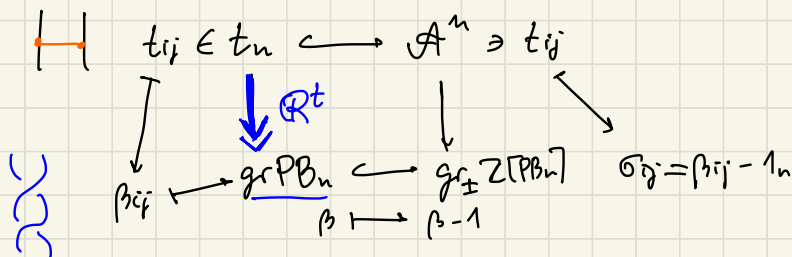 tij ∈ tn ↪ 𝒜^n ∋ tij
R^t
βij ↦ grPBn ↪ gr_I Z[PBn] σij = βij - 1n
β ↦ β - 1